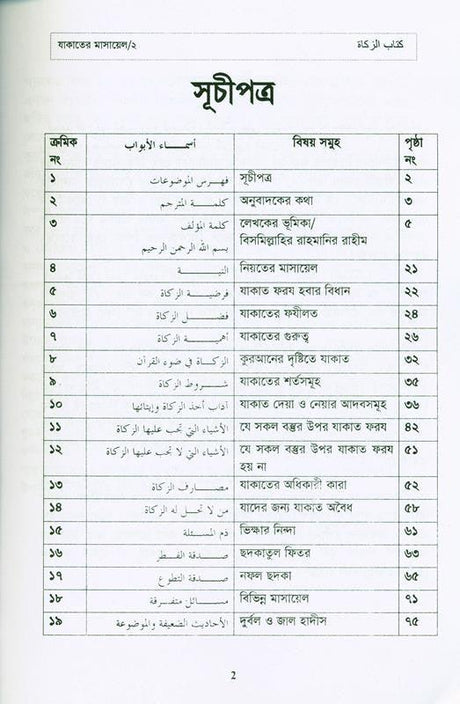 যাকাতের মাসায়েল/২ كتاب الزكاة
সূচীপত্র
ক্রমিক নং أسماء الأبواب বিষয় সমুহ পৃষ্ঠা নং
১ فهرس الموضوعات সূচীপত্র ২
২ كلمة المترجم অনুবাদকের কথা ৩
৩ كلمة المؤلف লেখকের ভূমিকা/ ৫
بسم الله الرحمن الرحيم বিসমিল্লাহির রাহমানির রাহীম
৪ النية নিয়তের মাসায়েল ২১
৫ فرضية الزكاة যাকাত ফরয হবার বিধান ২২
৬ فضل الزكاة যাকাতের ফযীলত ২৪
৭ أهمية الزكاة যাকাতের গুরুত্ব ২৬
৮ الزكاة في ضوء القرآن কুরআনের দৃষ্টিতে যাকাত ৩২
৯ شروط الزكاة যাকাতের শর্তসমূহ ৩৫
১০ آداب أخذ الزكاة وإيتائها যাকাত দেয়া ও নেয়ার আদবসমূহ ৩৬
১১ الأشياء التي تجب عليها الزكاة যে সকল বস্তুর উপর যাকাত ফরয ৪২
১২ الأشياء التي لا تجب عليها الزكاة যে সকল বস্তুর উপর যাকাত ফরয ৫১
হয় না
১৩ مصارف الزكاة যাকাতের অধিকারী কারা ৫২
১৪ من لا تحل له الزكاة যাদের জন্য যাকাত অবৈধ ৫৮
১৫ ذم المسئلة ভিক্ষার নিন্দা ৬১
১৬ صدقة الفطر ছদকাতুল ফিতর ৬৩
১৭ صدقة التطوع নফল ছদকা ৬৫
১৮ مسائل متفرقة বিভিন্ন মাসায়েল ৭১
১৯ الأحاديث الضعيفة والموضوعة দুর্বল ও জাল হাদীস ৭৫
2